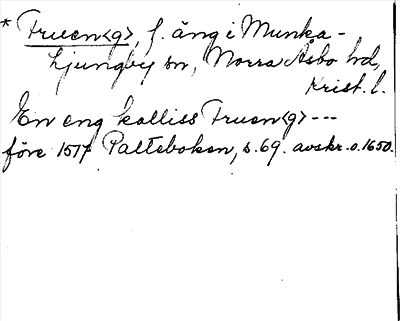 * Fruen<g>, f. äng i Munka-
Ljungby sn, Norra Åsbo hd,
Krist. l.
En eng kalliss Fruen<g> ---
före 1517 Palteboken, s. 69. avskr. o. 1650.